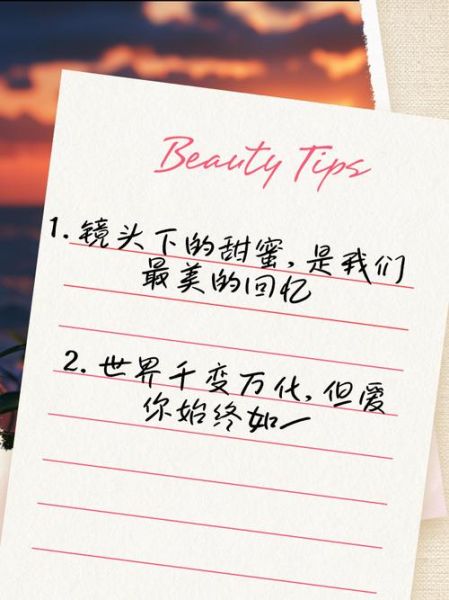 Beauty Tips
1. 镜头下的甜蜜，是我们
最美的回忆
2. 世界千变万化，但爱
你始终如一